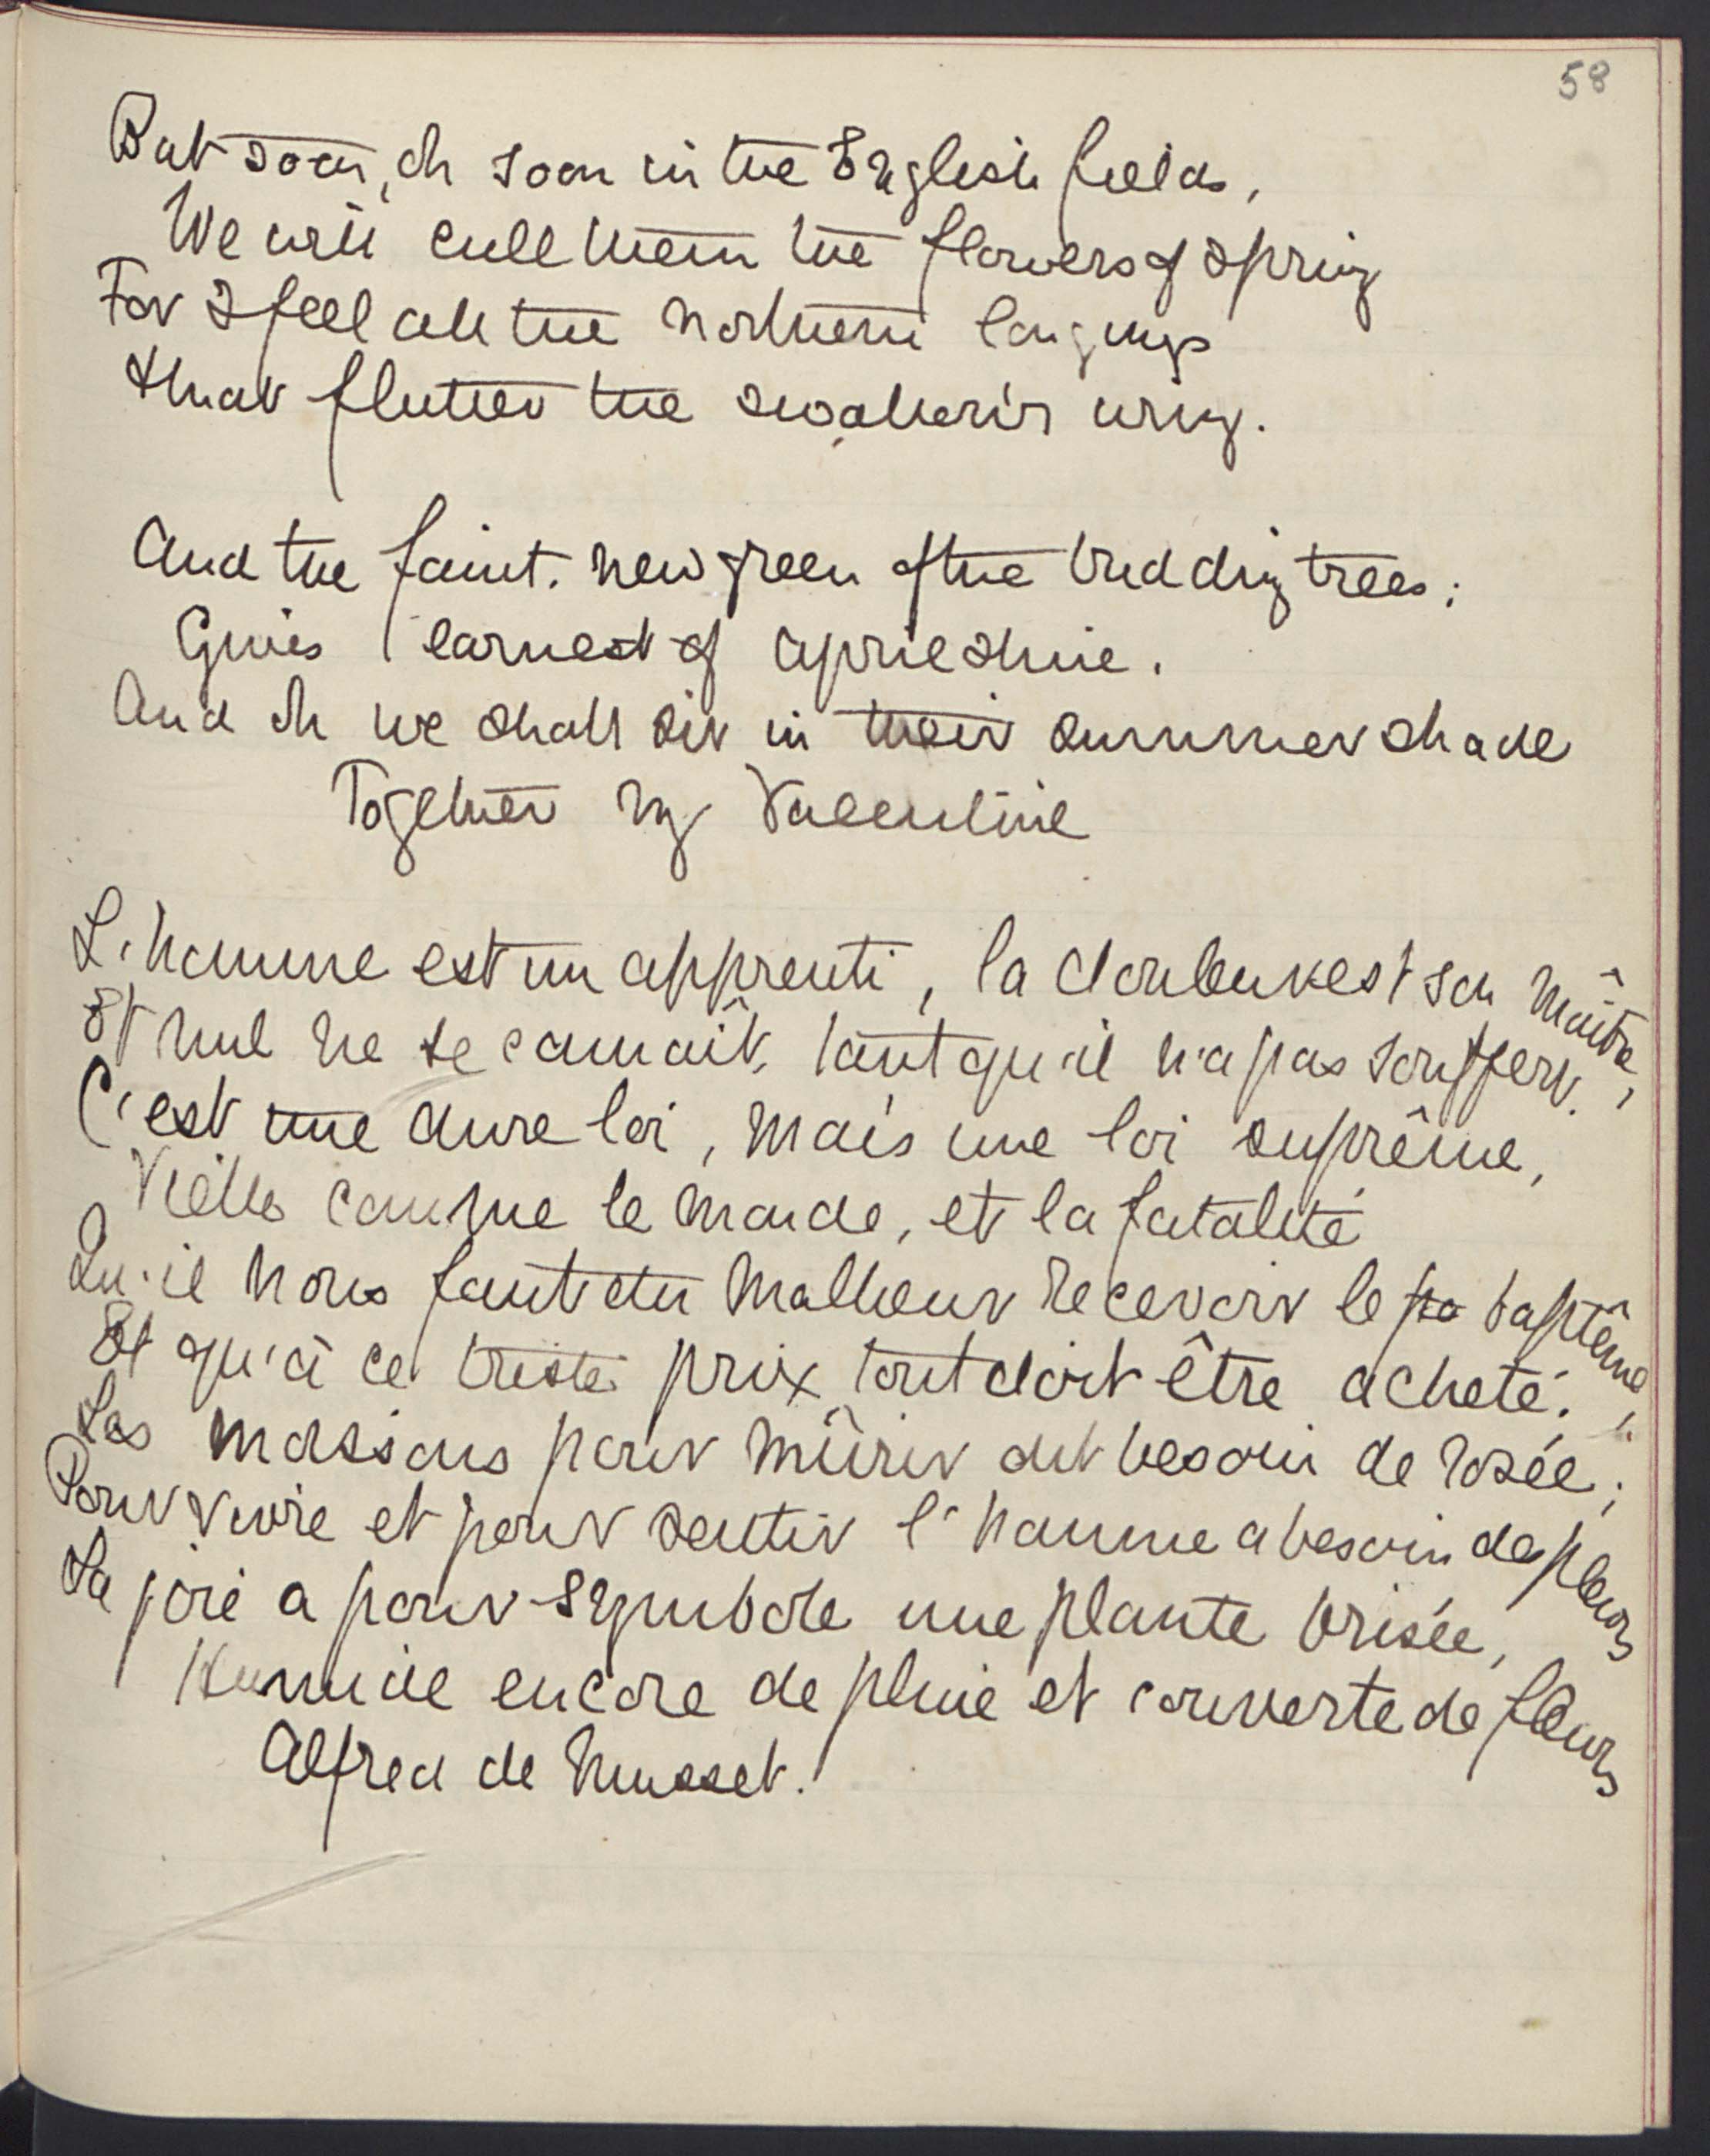 58
But soon, oh soon in the English fields,
We will cull them the flowers of spring
For I feel all the northern longings
that flutter the swallow's wing.
And the faint. new green of the budding trees;
Gives earnest of april shine.
And oh we shall sit in their summer shade
Together my Valentine
L'homme est un apprenti, la douleur est son maître,
Et nul ne se connaît, tant qu'il n'a pas souffert.
C'est une dure loi, mais une loi suprême,
Vieille comme le monde, et la fatalité
Qu'il nous faut du malheur recevoir le baptême,
Et qu'à ce triste prix, tout doit être acheté.
Les moissons pour mûrir ont besoin de rosée;
Pour vivre et pour sentir l'homme a besoin des pleurs
La joie a pour symbole une plante brisée,
Humide encore de pluie et couverte de fleurs
Alfred de Musset.